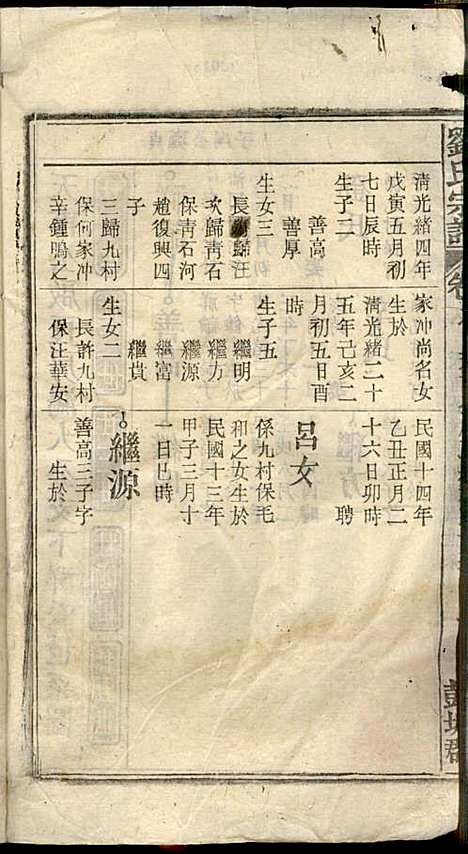 劉氏宗譜
彭城郡
清光緒四年
戊寅五月初
七日辰時
生子二
善高
善厚
生女三
長歸汪
次歸青石
保青石河
趙復興四
子
三歸九村
保何家冲
辛鍾鳴之
家冲尚名女
生於
清光緒二十
五年己亥二
月初五日酉
時
生子五
繼明
繼力
繼源
繼富
繼貴
生女二
長許九村
保汪華安
民國十四年
乙丑正月二
十六日卯時
聘
呂女
保九村保毛
和之女生於
民國十三年
甲子三月十
一日巳時
繼源
善高三子字
生於